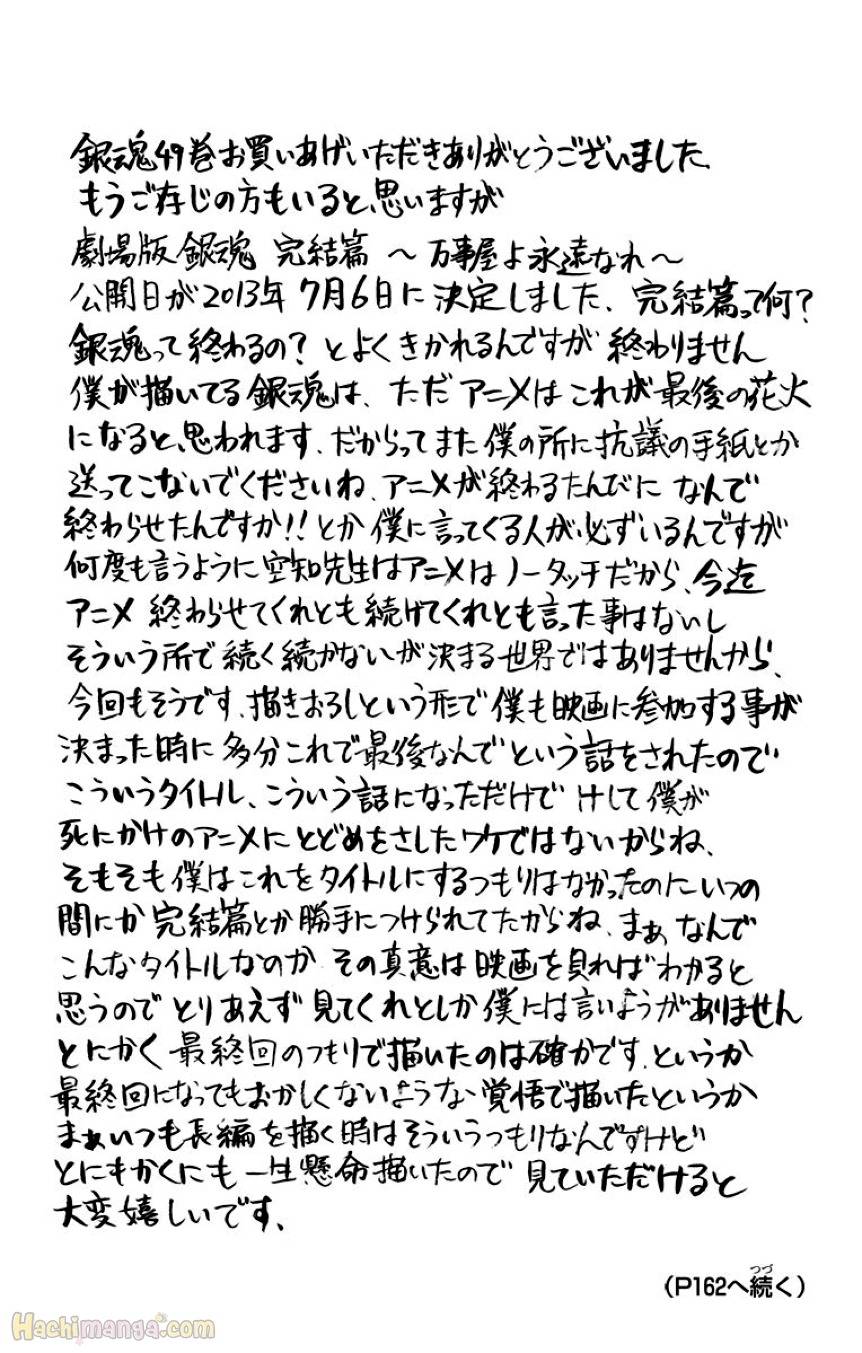 銀魂49巻お買いあげいただきありがとうございました、
もうご存じの方もいると思いますが
劇場版 銀魂 完結篇 〜万事屋よ永遠なれ〜
公開日が2013年7月6日に決定しました、完結篇って何?
銀魂って終わるの?とよくきかれるんですが終わりません
僕が描いてる銀魂は、ただアニメはこれが最後の花火
になると思われます、だからってまた僕の所に抗議の手紙とか
送ってこないでくださいね、アニメが終わるたんびになんで
終わらせたんですか!!とか僕に言ってくる人が必ずいるんですが
何度も言うように空知先生はアニメはノータッチだから、今迄
アニメ終わらせてくれとも続けてくれとも言った事はないし
そういう所で続く続かないが決まる世界ではありませんから、
今回もそうです、描きおろしという形で僕も映画に参加する事が
決まった時に多分これで最後なんでという話をされたので
こういうタイトル、こういう話になっただけでけして僕が
死にかけのアニメにとどめをさしたワケではないからね、
そもそも僕はこれをタイトルにするつもりはなかったのにいつの
間にか完結篇とか勝手につけられてたからね、まぁなんで
こんなタイトルなのかその真意は映画を見ればわかると
思うのでとりあえず見てくれとしか僕には言いようがありません
とにかく最終回のつもりで描いたのは確かです、というか
最終回になってもおかしくないような覚悟で描いたというか
まぁいつも長編を描く時はそういうつもりなんですけど
とにもかくにも一生懸命描いたので見ていただけると
大変嬉しいです、
(P162へ続く)
つづ
Hachimanga.com